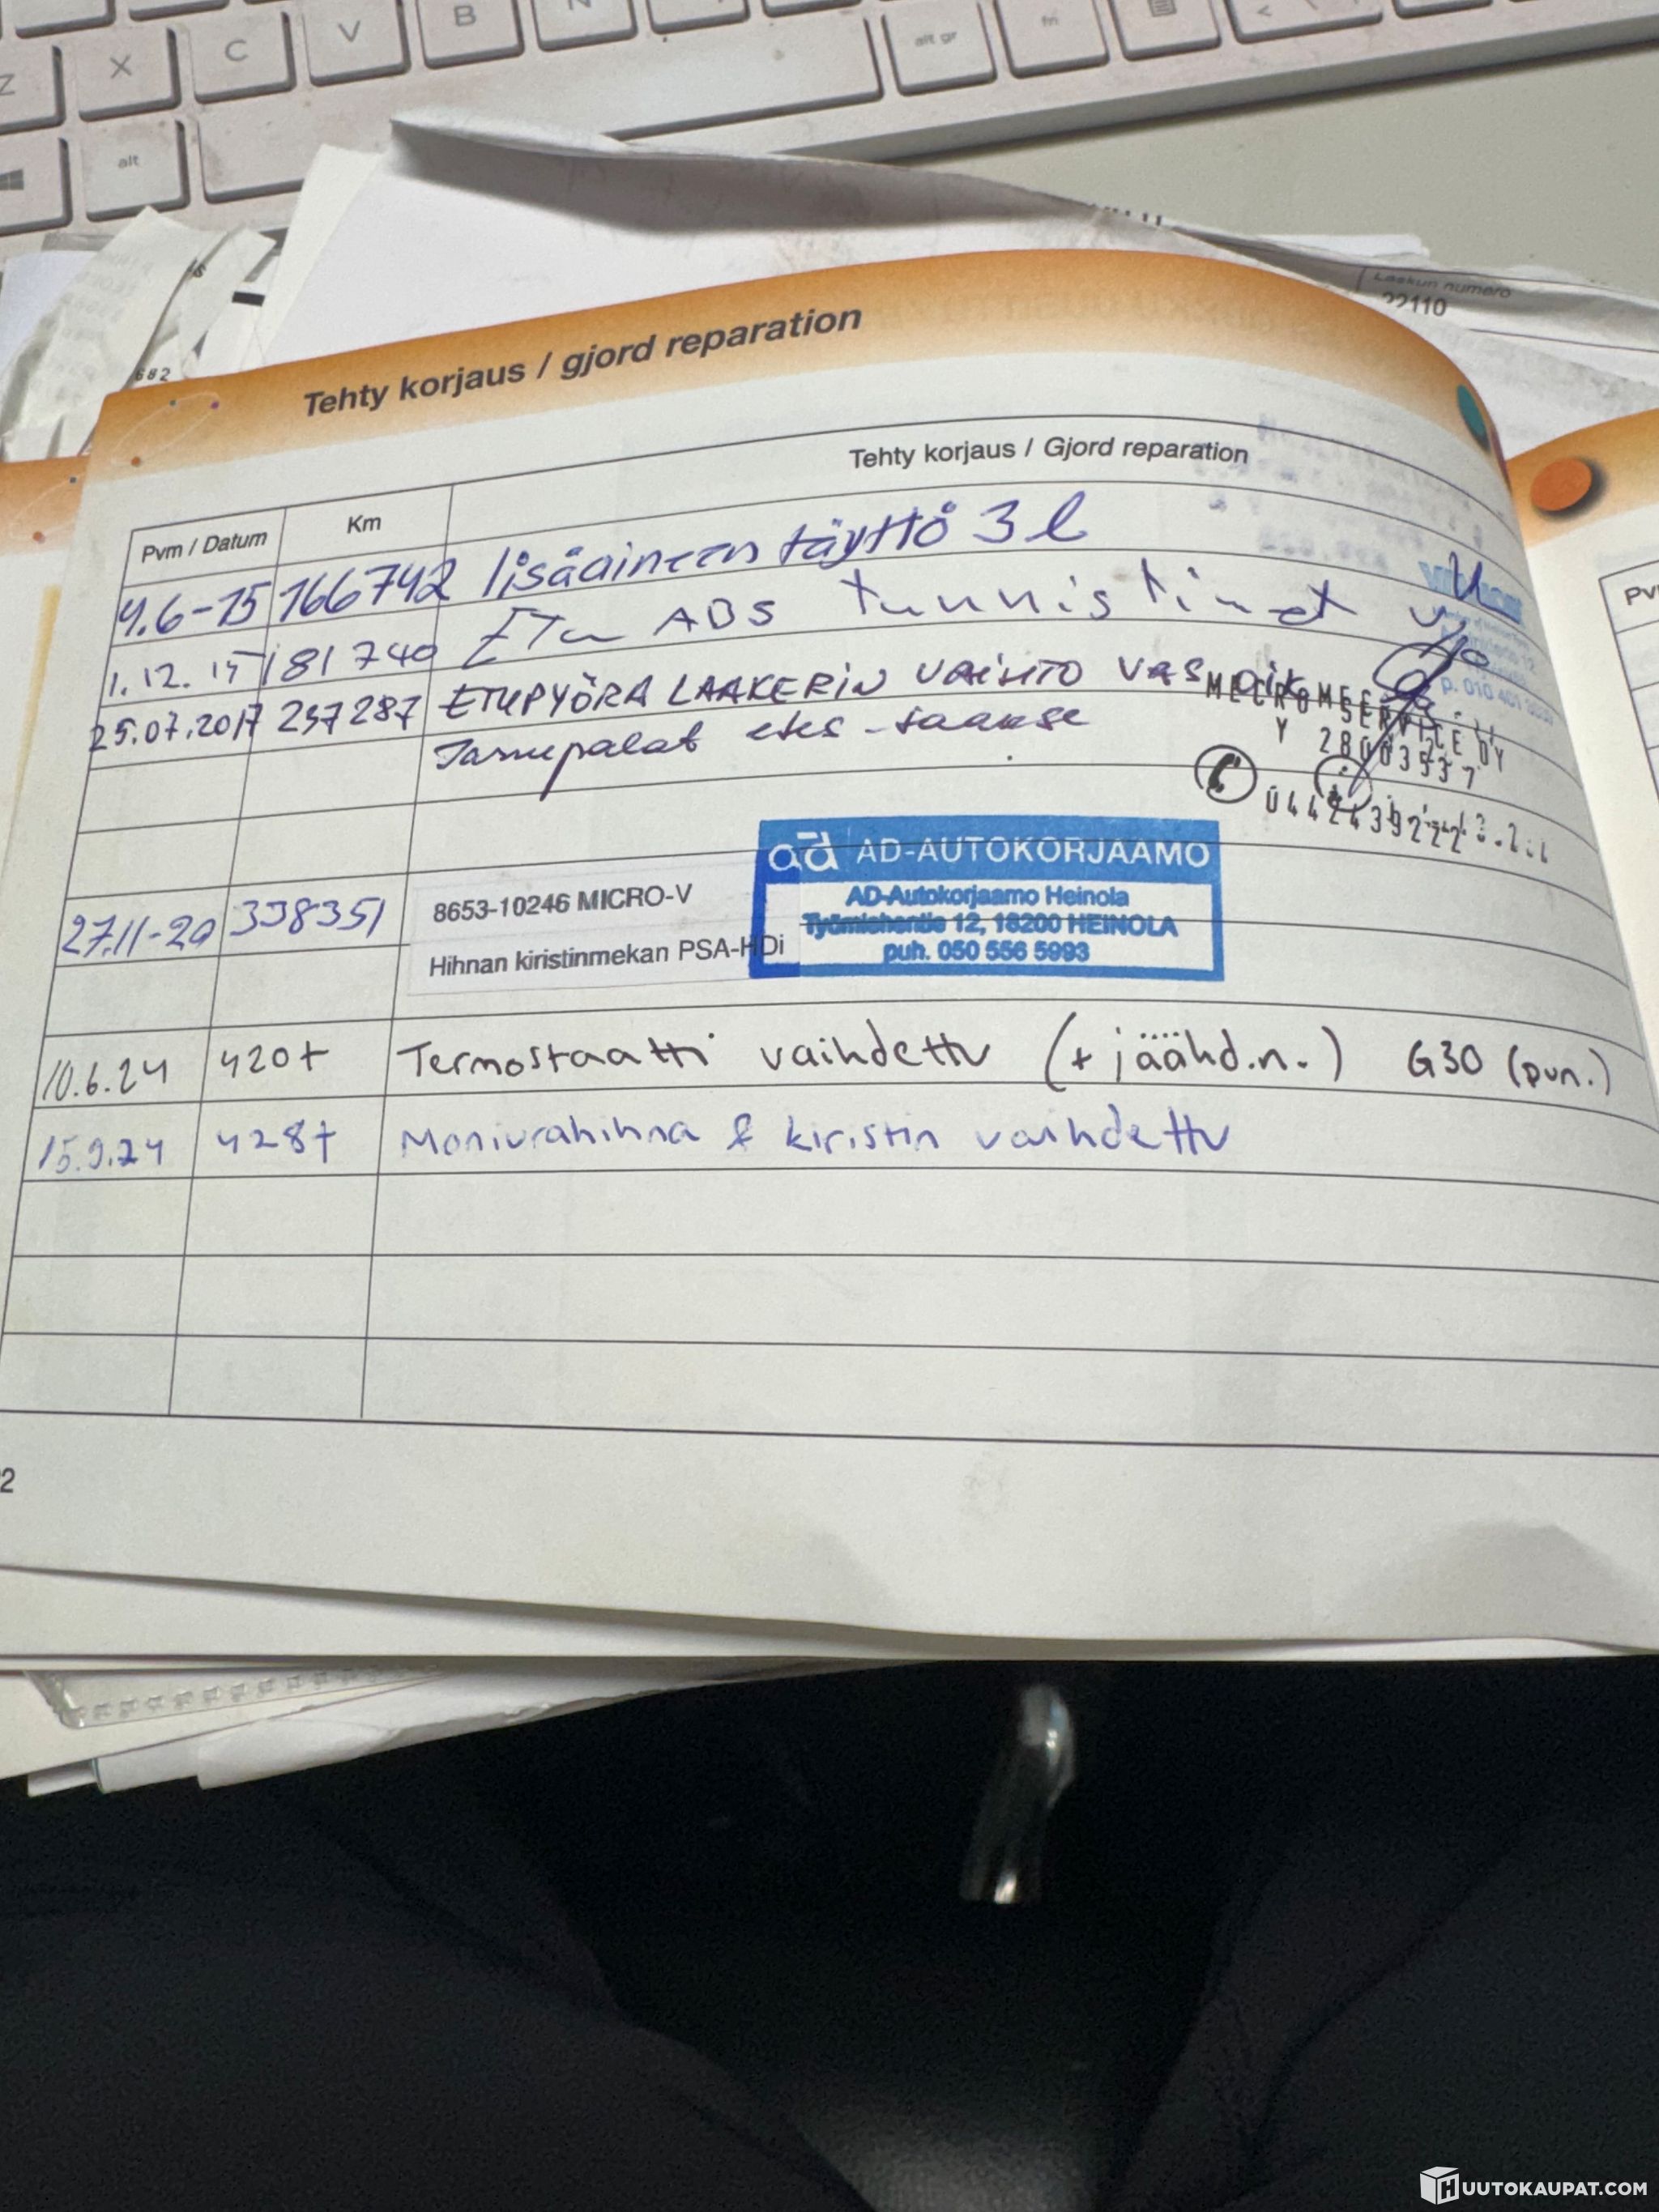 Z X C V B N alt gr fn <
alt
Laskun numero
22110
682
Tehty korjaus / gjord reparation
Pvm / Datum Km Tehty korjaus / Gjord reparation
4.6-15 166742 lisäaineen täyttö 3 l
1.12.15 181740 Etu ABS tunnistimet
25.07.2017 237287 ETUPYÖRÄ LAAKERIN VAIHTO VAS
etes-taakse
SERVICE OY
Y 2800353 7
0442439222
p. 010 401
27.11-20 338351 8653-10246 MICRO-V
Hihnan kiristinmekan PSA-HDi
ad AD-AUTOKORJAAMO
AD-Autokorjaamo Heinola
Työmiehentie 12, 18200 HEINOLA
puh. 050 556 5993
10.6.24 420t Termostaatti vaihdettu (+ jäähd.n.) G30 (pun.)
15.9.24 428t Moniurahihna & kiristin vaihdettu
2
Pv
HUUTOKAUPAT.COM